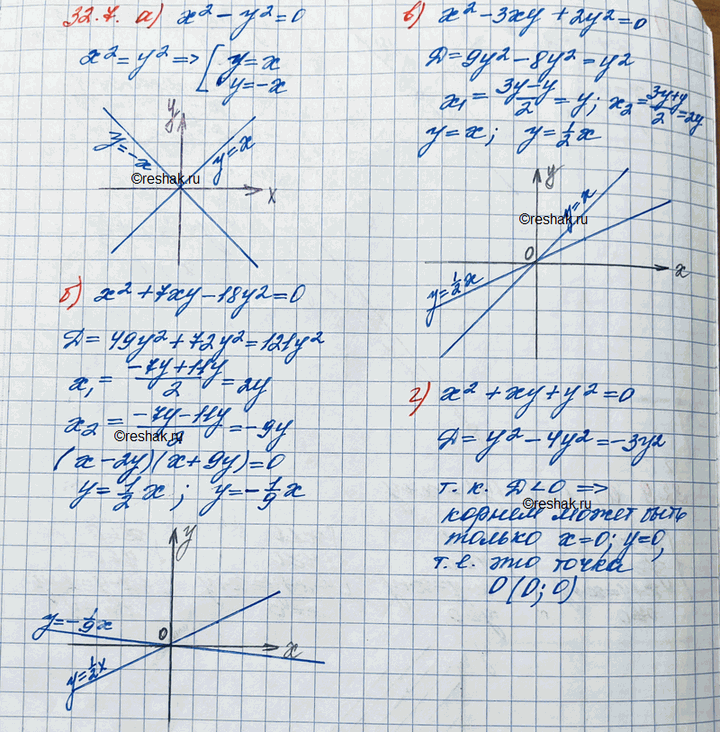 32.7. а) x² - y² = 0
x² = y² => [ y = x
y = -x
y
y = -x
y = x
©reshak.ru
x
б) x² + 7xy - 18y² = 0
Д = 49y² + 72y² = 121y²
x₁ = (-7y + 11y)/2 = 2y
x₂ = (-7y - 11y)/2 = -9y
©reshak.ru
(x - 2y)(x + 9y) = 0
y = 1/2 x ; y = -1/9 x
y
y = -1/9 x
0
x
y = 1/2 x
в) x² - 3xy + 2y² = 0
Д = 9y² - 8y² = y²
x₁ = (3y - y)/2 = y; x₂ = (3y + y)/2 = 2y
y = x; y = 1/2 x
y
y = x
©reshak.ru
0
x
y = 1/2 x
г) x² + xy + y² = 0
Д = y² - 4y² = -3y²
т. к. Д < 0 =>
©reshak.ru
корнем может быть
только x = 0; y = 0,
т. е. это точка
O (0; 0)